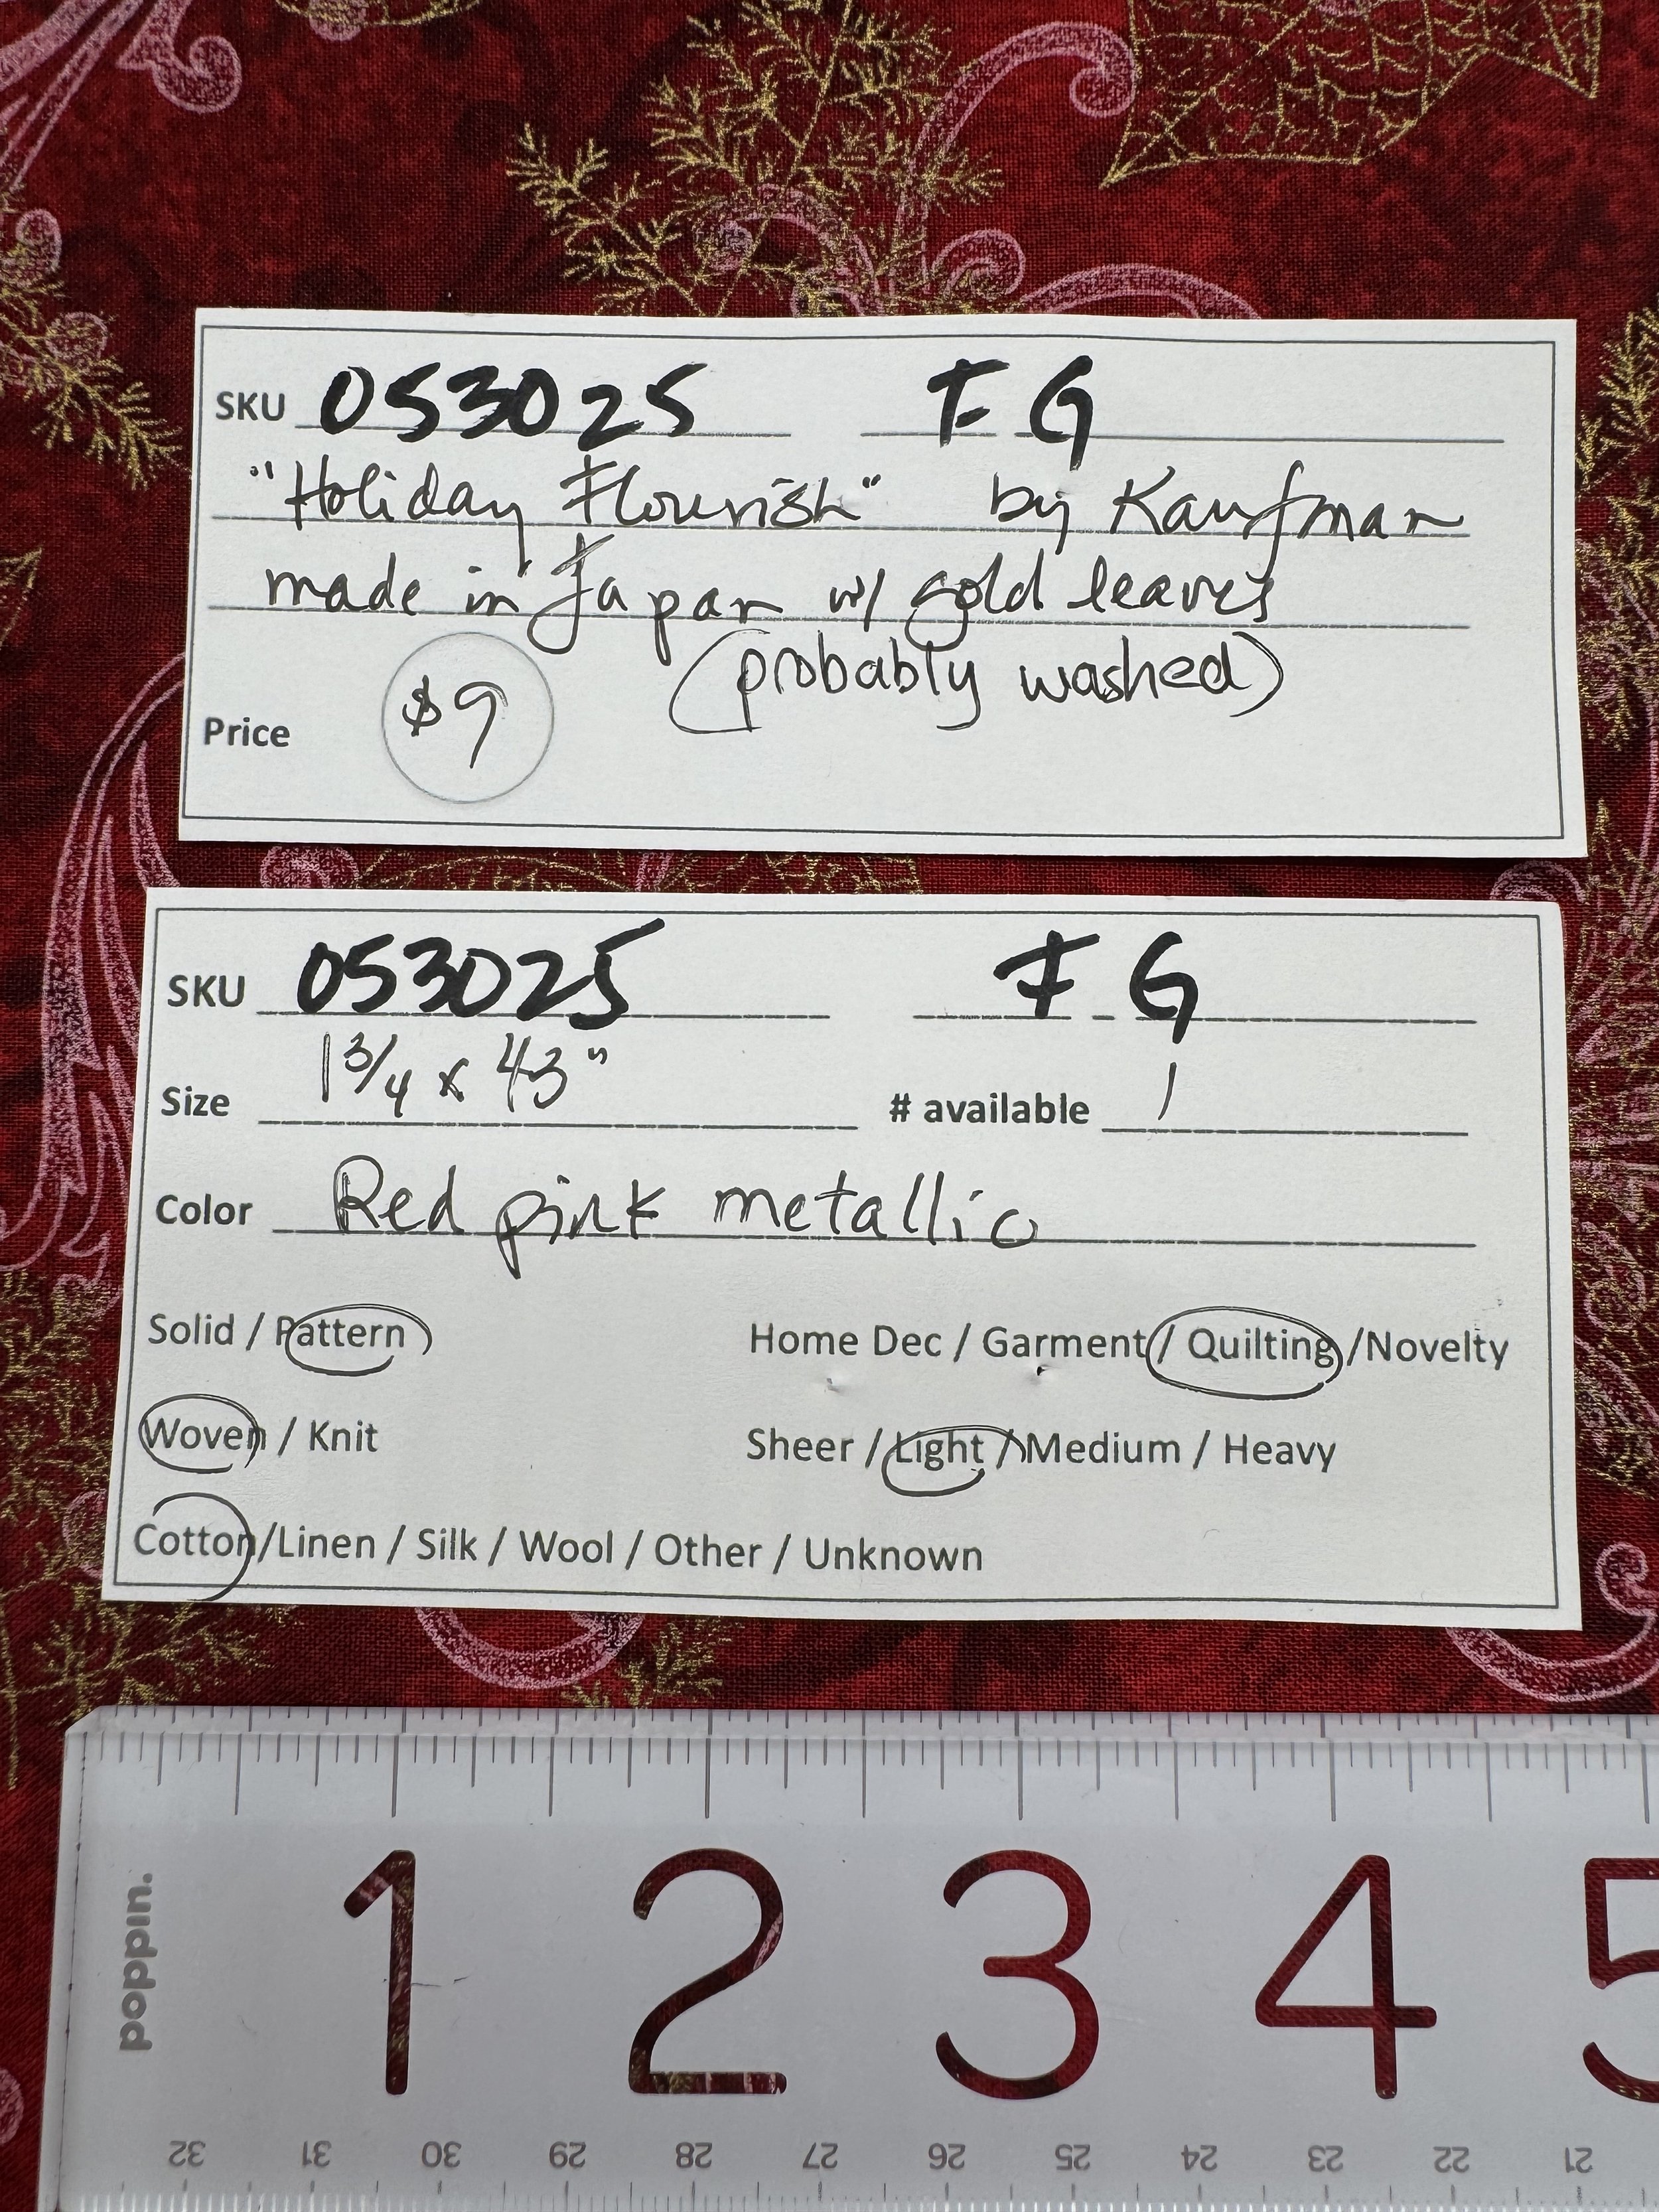 SKU 053025 FG
"Holiday Flourish" by Kaufman
made in Japan w/ gold leaves
(probably washed)
Price $9
SKU 053025 FG
Size 1 3/4 x 43" # available 1
Color Red pink metallic
Solid / Pattern Home Dec / Garment / Quilting / Novelty
Woven / Knit Sheer / Light / Medium / Heavy
Cotton/Linen / Silk / Wool / Other / Unknown
poppin.
1 2 3 4 5
32 31 30 29 28 27 26 25 24 23 22 21